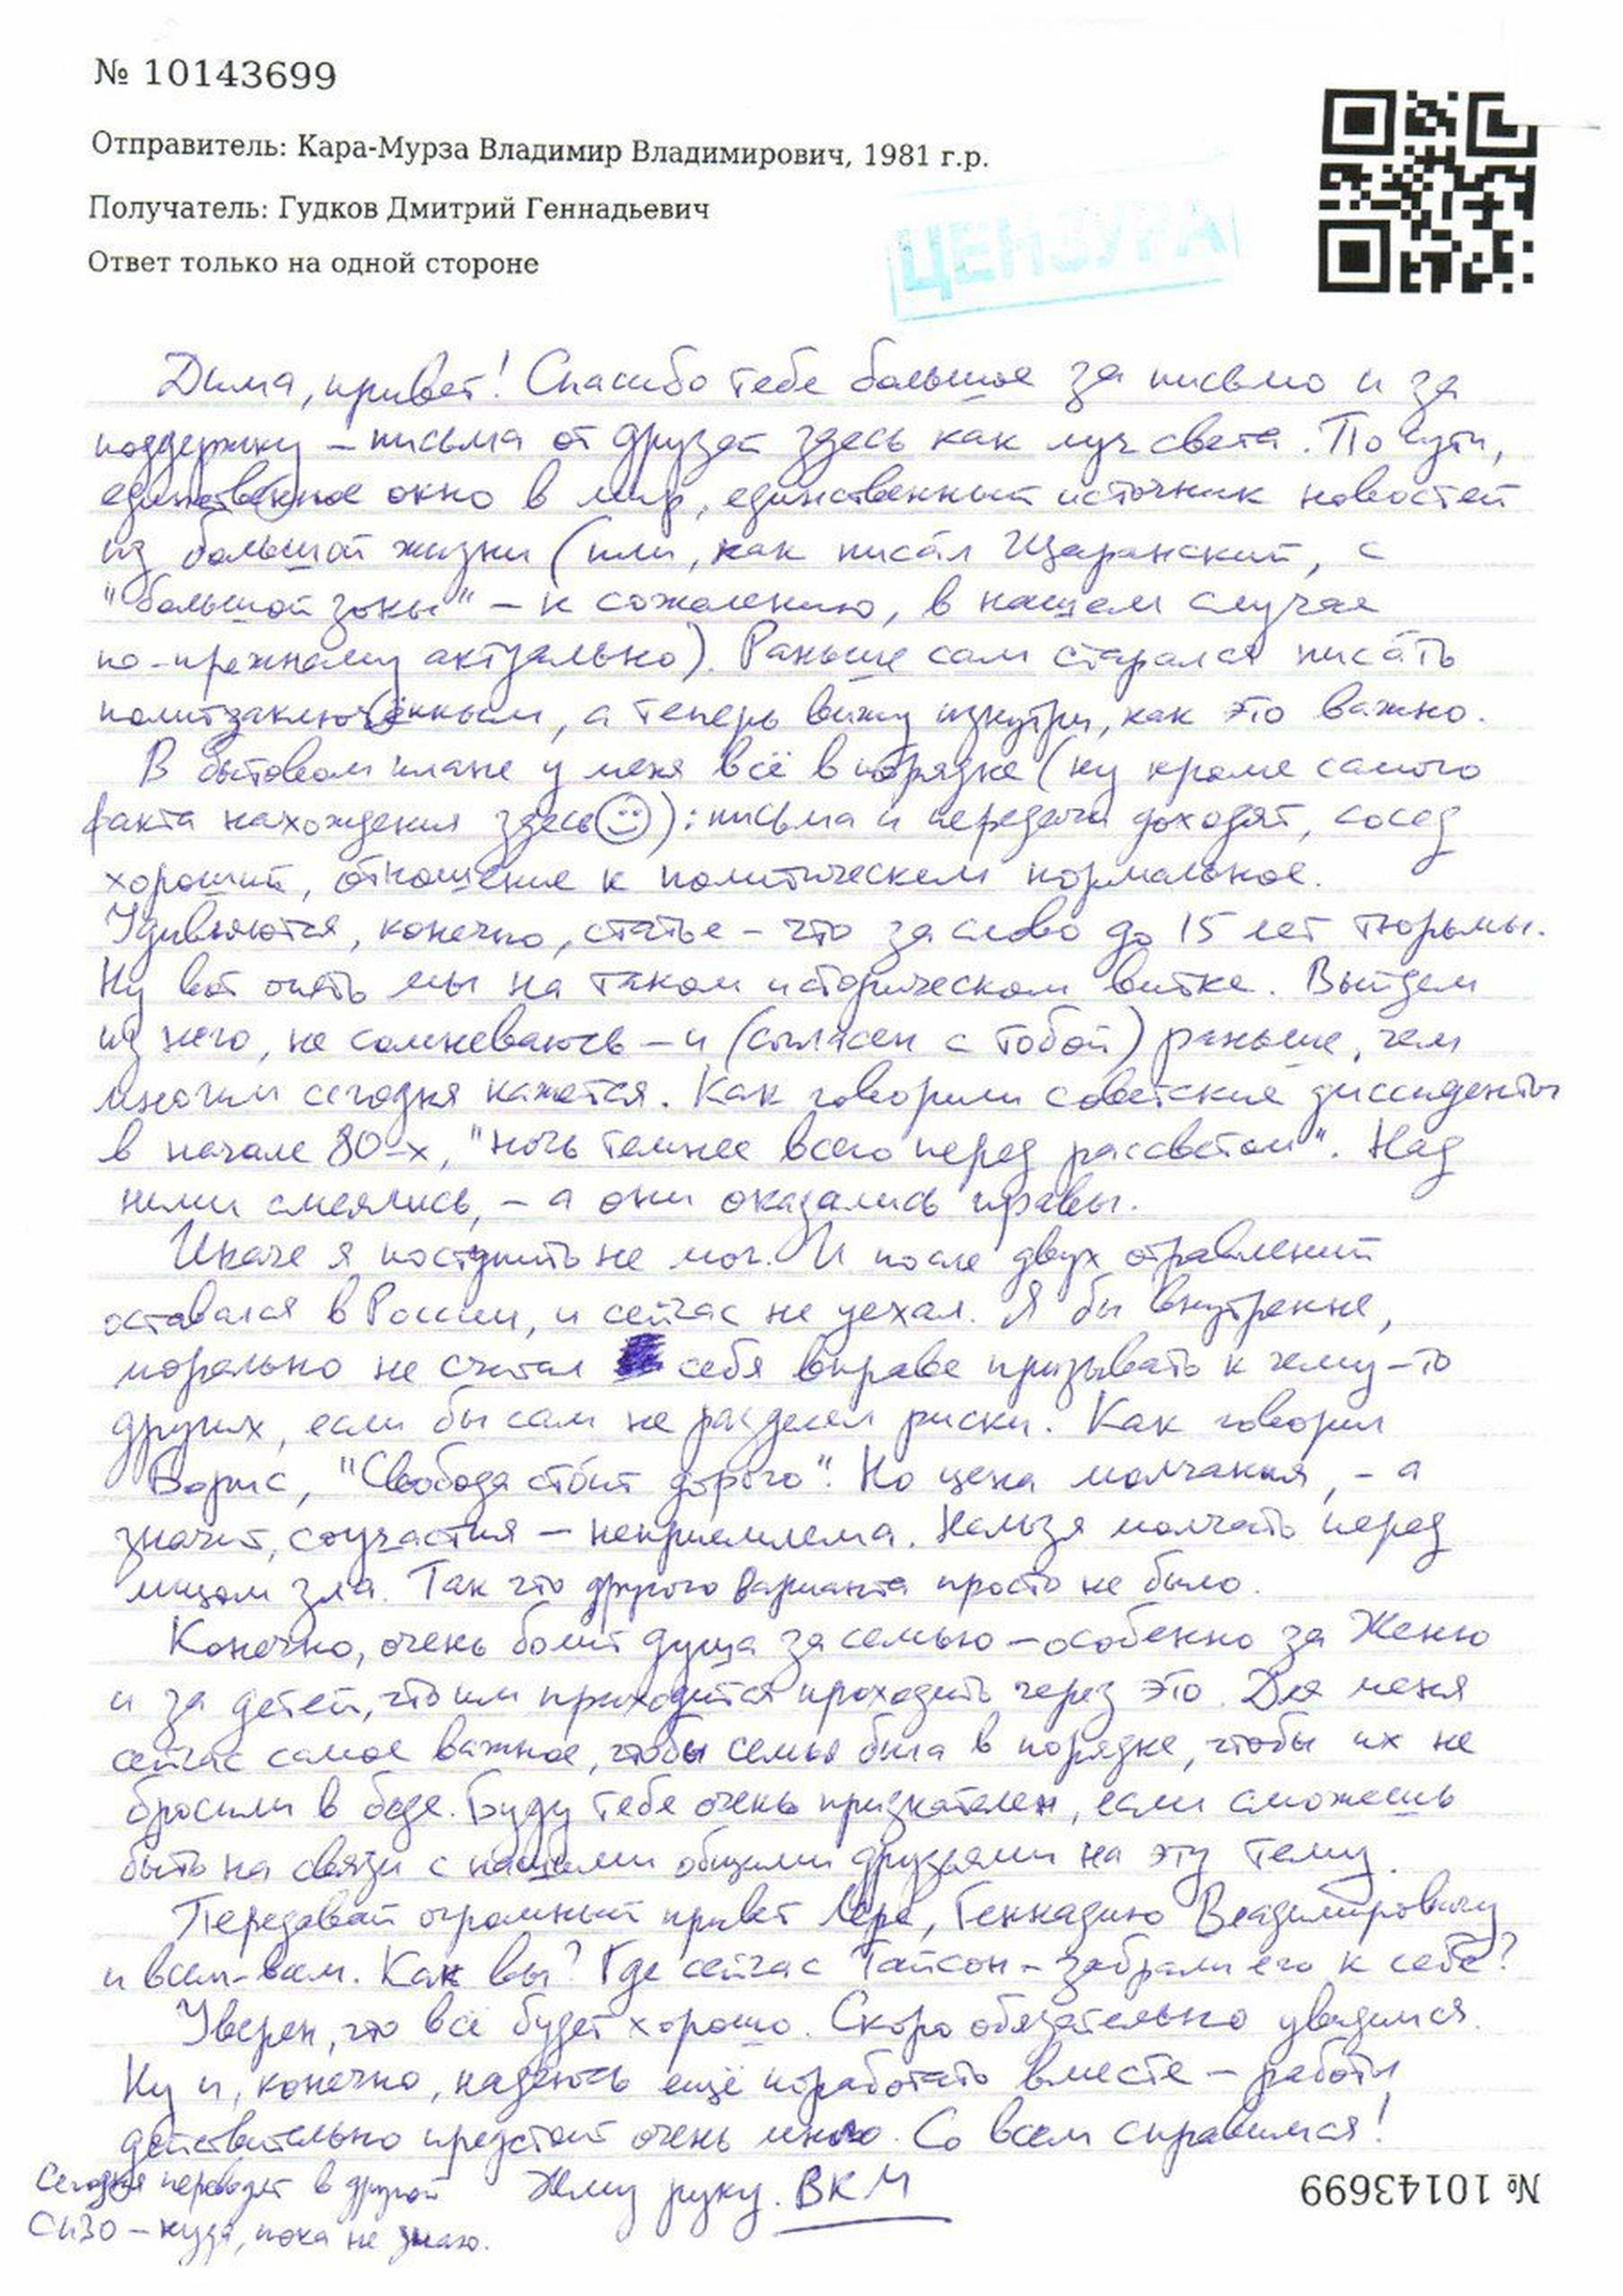 № 10143699
Отправитель: Кара-Мурза Владимир Владимирович, 1981 г.р.
Получатель: Гудков Дмитрий Геннадьевич
Ответ только на одной стороне
ЦЕНЗУРА
Дима, привет! Спасибо тебе большое за письмо и за
поддержку – письма от друзей здесь как луч света. По сути,
единственное окно в мир, единственный источник новостей
из большой жизни (или, как писал Щаранский, с
"большой зоны" – к сожалению, в нашем случае
по-прежнему актуально). Раньше сам старался писать
политзаключённым, а теперь вижу изнутри, как это важно.
В бытовом плане у меня всё в порядке (ну кроме самого
факта нахождения здесь☺): письма и передачи доходят, сосед
хороший, отношение к политическим нормальное.
Удивляются, конечно, статье – что за слово до 15 лет тюрьмы.
Ну вот опять мы на таком историческом витке. Выйдем
из него, не сомневаюсь – и (согласен с тобой) раньше, чем
многим сегодня кажется. Как говорили советские диссиденты
в начале 80-х, "ночь темнее всего перед рассветом". Над
ними смеялись, – а они оказались правы.
Иначе я поступить не мог. И после двух отравлений
оставался в России, и сейчас не уехал. Я бы внутренне,
морально не считал себя вправе призывать к чему-то
других, если бы сам не разделял риски. Как говорил
Борис, "Свобода стóит дорого". Но цена молчания, – а
значит, соучастия – неприемлема. Нельзя молчать перед
лицом зла. Так что другого варианта просто не было.
Конечно, очень болит душа за семью – особенно за Женю
и за детей, что им приходится проходить через это. Для меня
сейчас самое важное, чтобы семья была в порядке, чтобы их не
бросили в беде. Буду тебе очень признателен, если сможешь
быть на связи с нашими общими друзьями на эту тему.
Передавай огромный привет Лере, Геннадию Владимировичу
и всем-всем. Как вы? Где сейчас Тайсон – забрали его к себе?
Уверен, что всё будет хорошо. Скоро обязательно увидимся.
Ну и, конечно, надеюсь ещё поработать вместе – работы
действительно предстоит очень много. Со всем справимся!
Жму руку. ВКМ
Сегодня переводят в другой
СИЗО – куда, пока не знаю.
№ 10143699